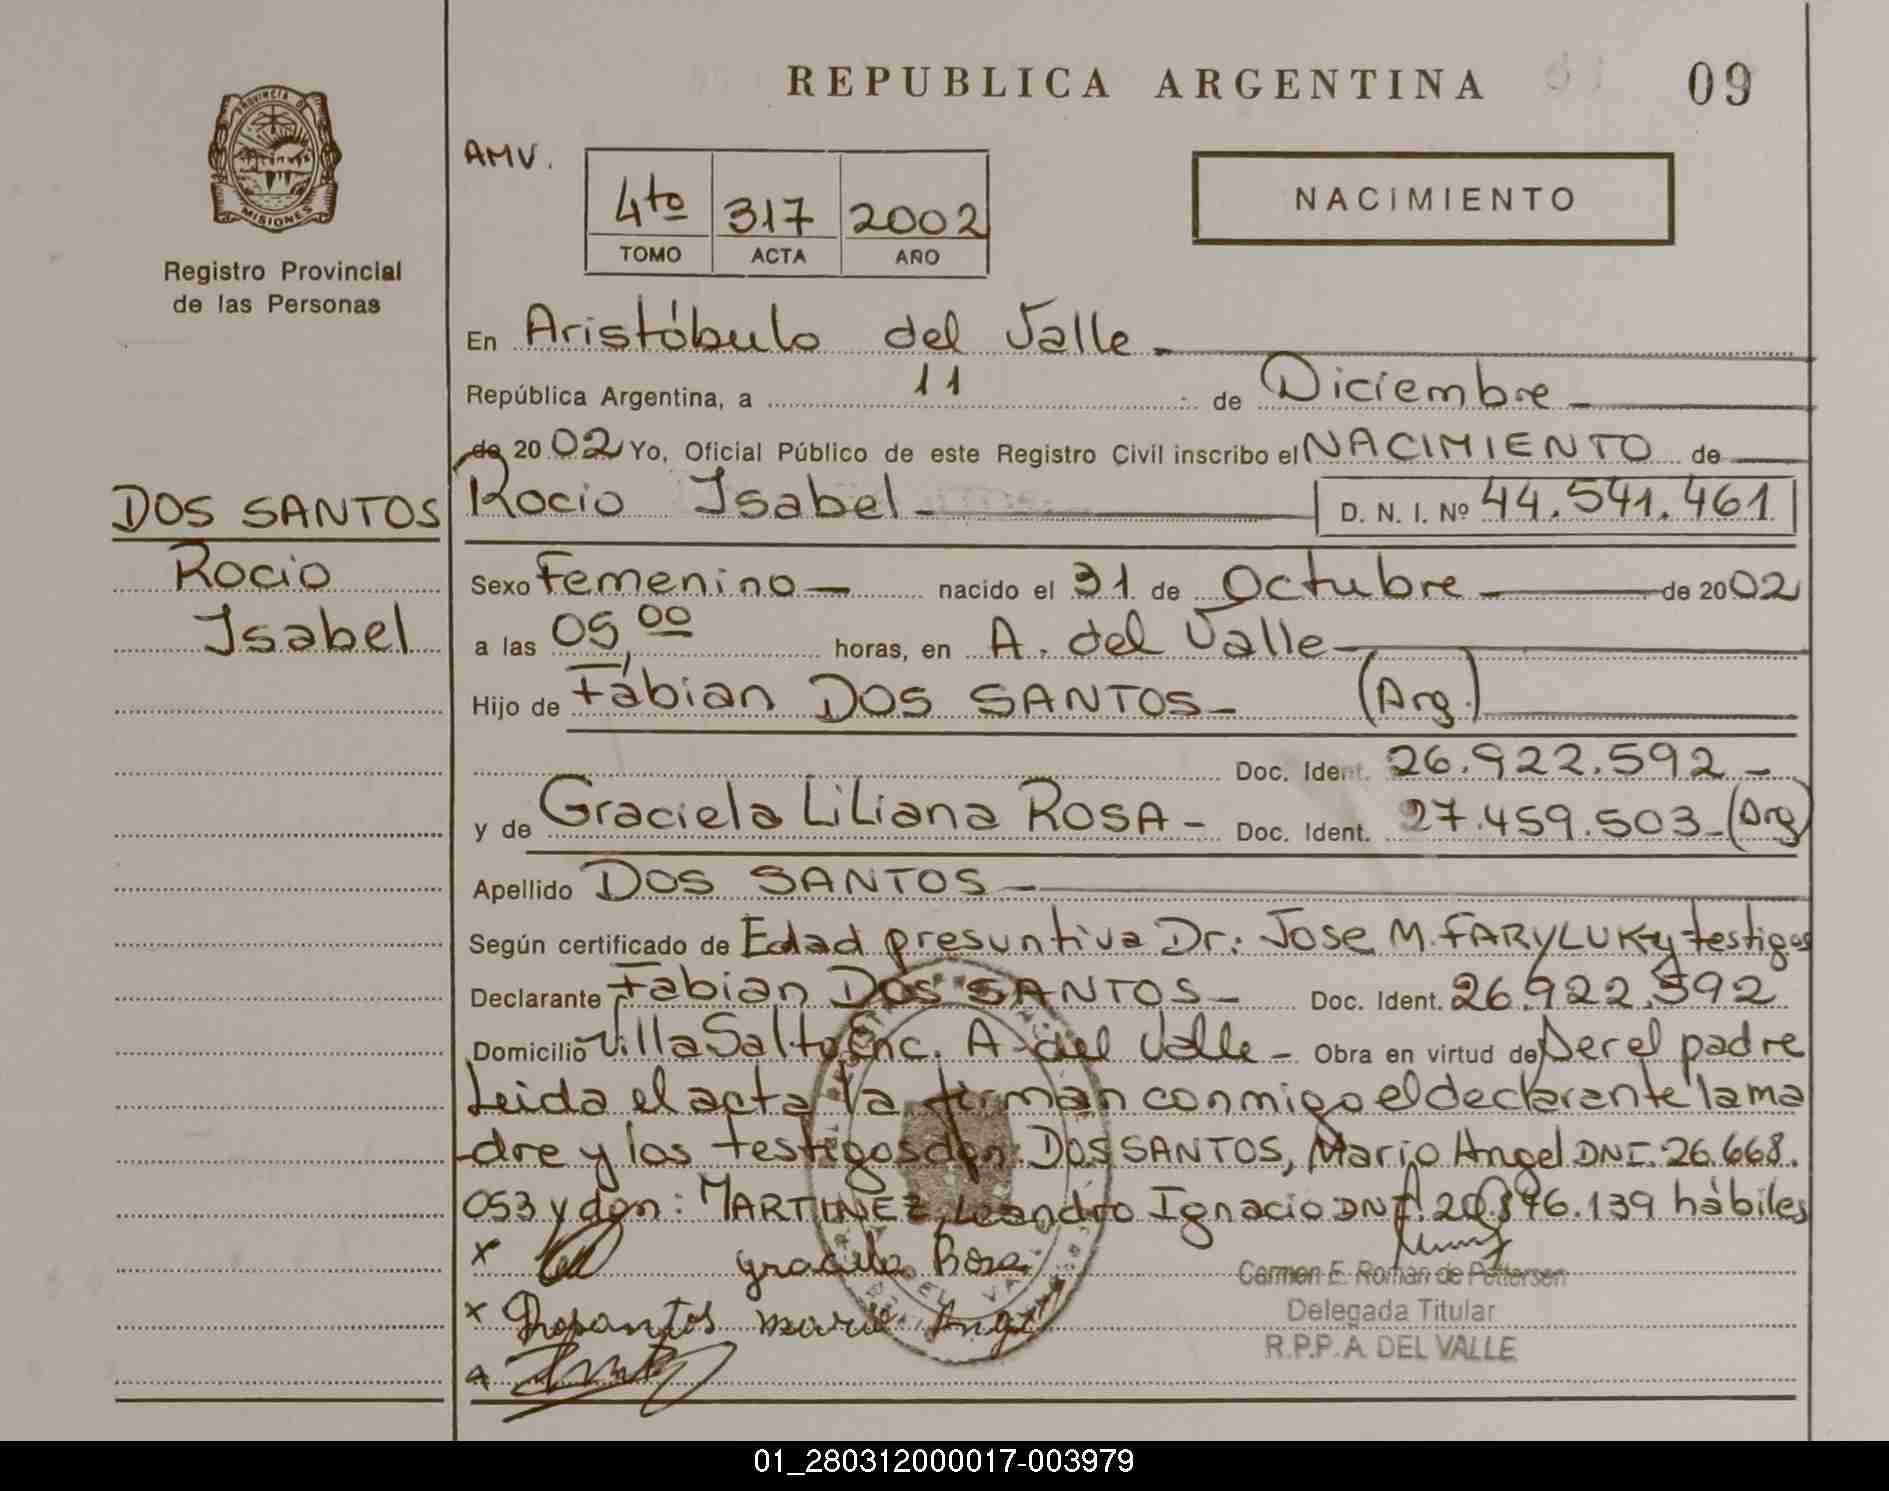 REPUBLICA ARGENTINA
09
PROVINCIA D
MISIONES
Registro Provincial
de las Personas
AMV.
4to 317 2002
TOMO ACTA AÑO
NACIMIENTO
En Aristóbulo del Valle
República Argentina, a 11 de Diciembre
de 2002 Yo, Oficial Público de este Registro Civil inscribo el NACIMIENTO de
Rocio Isabel D. N. I. Nº 44.541.461
DOS SANTOS
Rocio
Isabel
Sexo Femenino nacido el 31 de Octubre de 2002
a las 05,00 horas, en A. del Valle
Hijo de Fabian DOS SANTOS (Arg.)
Doc. Ident. 26.922.592
y de Graciela Liliana ROSA Doc. Ident. 27.459.503 (Arg)
Apellido DOS SANTOS
Según certificado de Edad presuntiva Dr: Jose M. FARYLUK y testigos
Declarante Fabian DOS SANTOS Doc. Ident. 26.922.592
Domicilio Villa Salto Enc. A. del Valle Obra en virtud de Ser el padre
Leida el acta la firman conmigo el declarante la ma
dre y los testigos don: DOS SANTOS, Mario Angel DNI. 26.668.
053 y don: MARTINEZ, Leandro Ignacio DNI. hábiles
x Graciela Rosa
x Dossantos mario Angel
Carmen E. Román de Pettersen
Delegada Titular
R.P.P. A. DEL VALLE
01_280312000017-003979